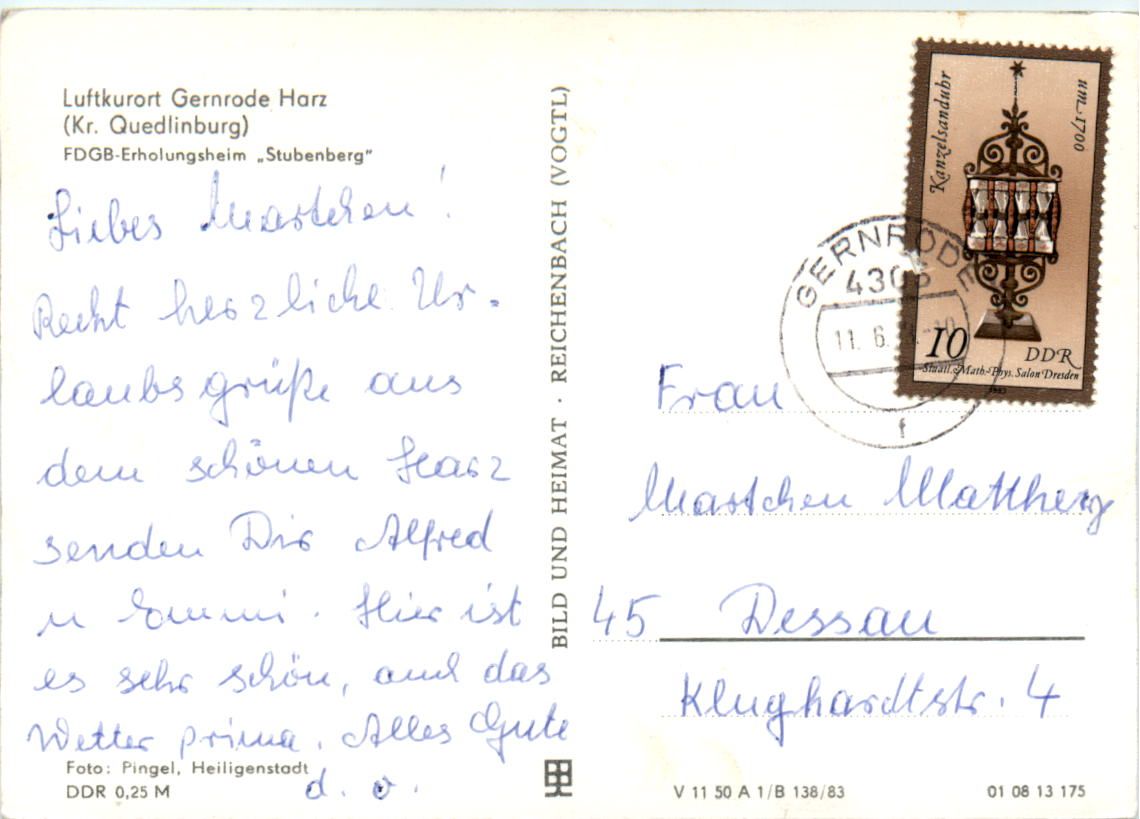 Luftkurort Gernrode Harz
(Kr. Quedlinburg)
FDGB-Erholungsheim „Stubenberg"
Liebes Martchen!
Recht herzliche Ur-
laubsgrüße aus
dem schönen Harz
senden Dir Alfred
u Emmi. Hier ist
es sehr schön, auch das
Wetter prima. Alles Gute
d. o.
Foto: Pingel, Heiligenstadt
DDR 0,25 M
BILD UND HEIMAT · REICHENBACH (VOGTL)
Kanzelsanduhr
um 1700
10
DDR
Staatl. Math.-Phys. Salon Dresden
GERNRODE
430
11. 6.
f
Frau
Martchen
45 Dessau
Klughardtstr. 4
V 11 50 A 1/B 138/83
01 08 13 175